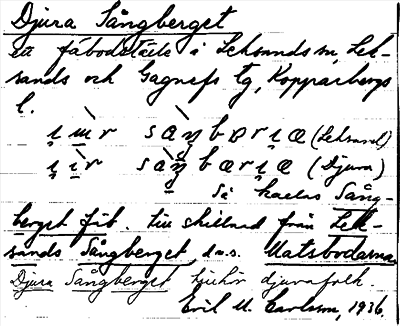 Djura Sångberget
ett fäbodställe i Leksands sn, Lek-
sands och Gagnefs tg, Kopparbergs
l.
(Leksand)
(Djura)
Så kallas Sång-
berget fäb. till skillnad från Lek-
sands Sångberget, d.v.s. Matsbodarna.
Djura Sångberget tillhör djurafolk.
Eril M. Carlsson, 1936.